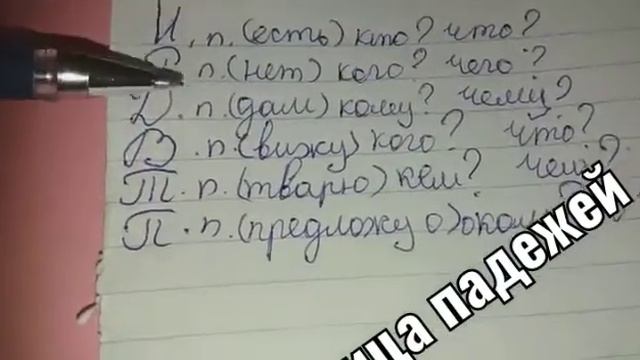 И. п. (есть) кто? что?
Р п. (нет) кого? чего?
Д. п. (дам) кому? чему?
В. п. (вижу) кого? что?
Т. п. (тварю) кем? чем?
П. п. (предложу о) о ком
ица падежей